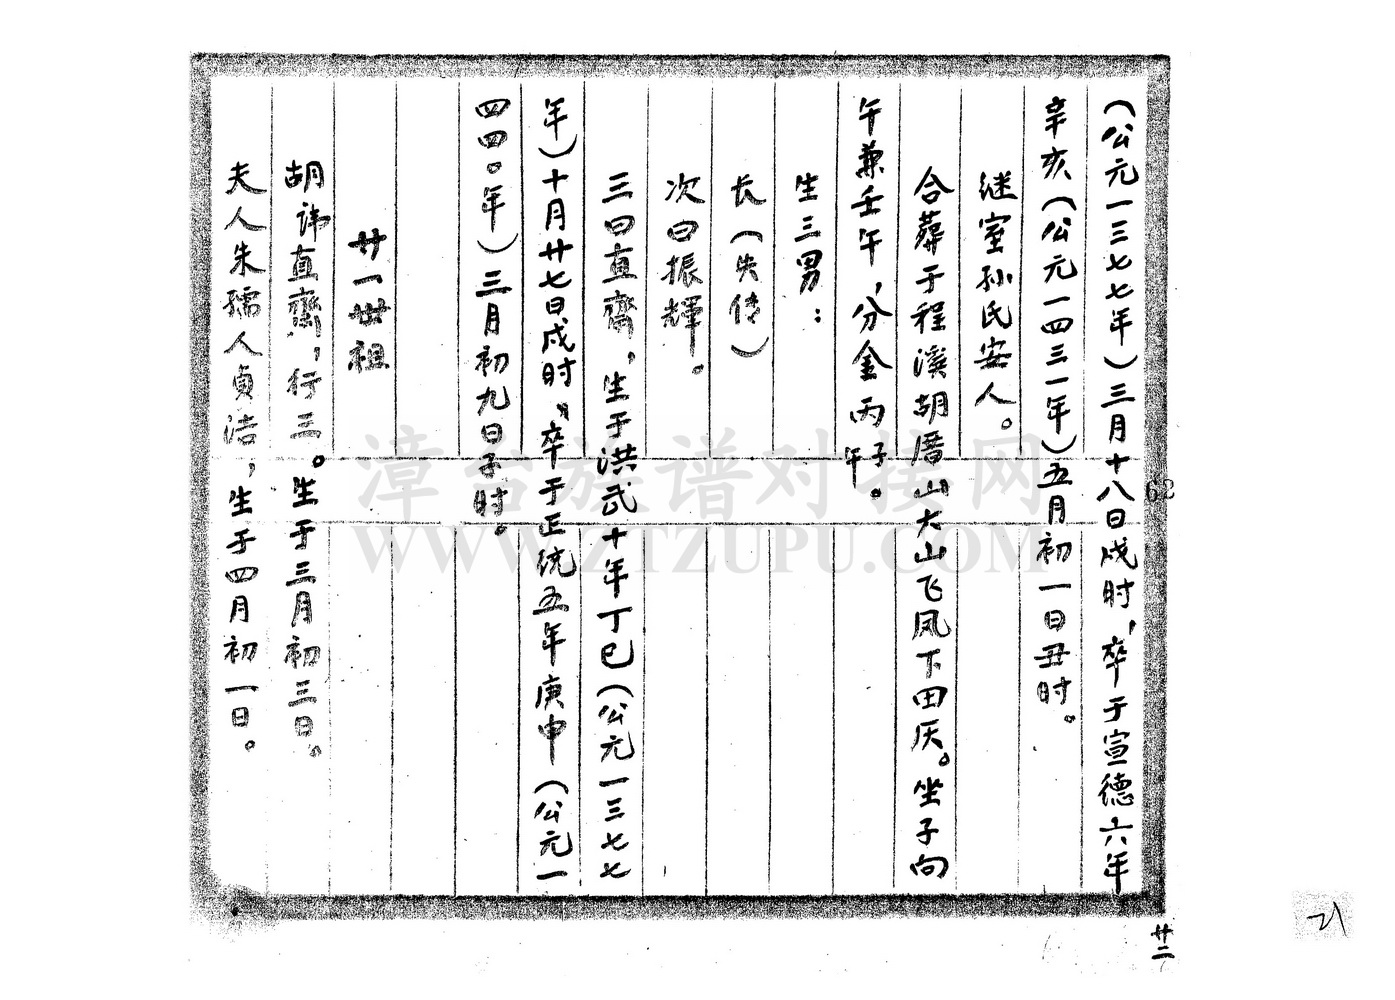 (公元一三七七年)三月十八日戍时，卒于宣德六年
辛亥(公元一四三一年)五月初一日丑时。
继室孙氏安人。
合葬于程溪胡厝山大山飞凤下田厌。坐子向
午兼壬午，分金丙子午。
生三男：
长(失传)
次曰振輝。
三曰直齋，生于洪武十年丁巳(公元一三七七
年)十月廿七日戍时，卒于正统五年庚申(公元一
四四〇年)三月初九日子时。
廿一世祖
胡讳直齋，行三。生于三月初三日。
夫人朱孺人貞洁，生于四月初一日。
62
廿二
21
漳台族谱对接网
WWW.ZTZUPU.COM